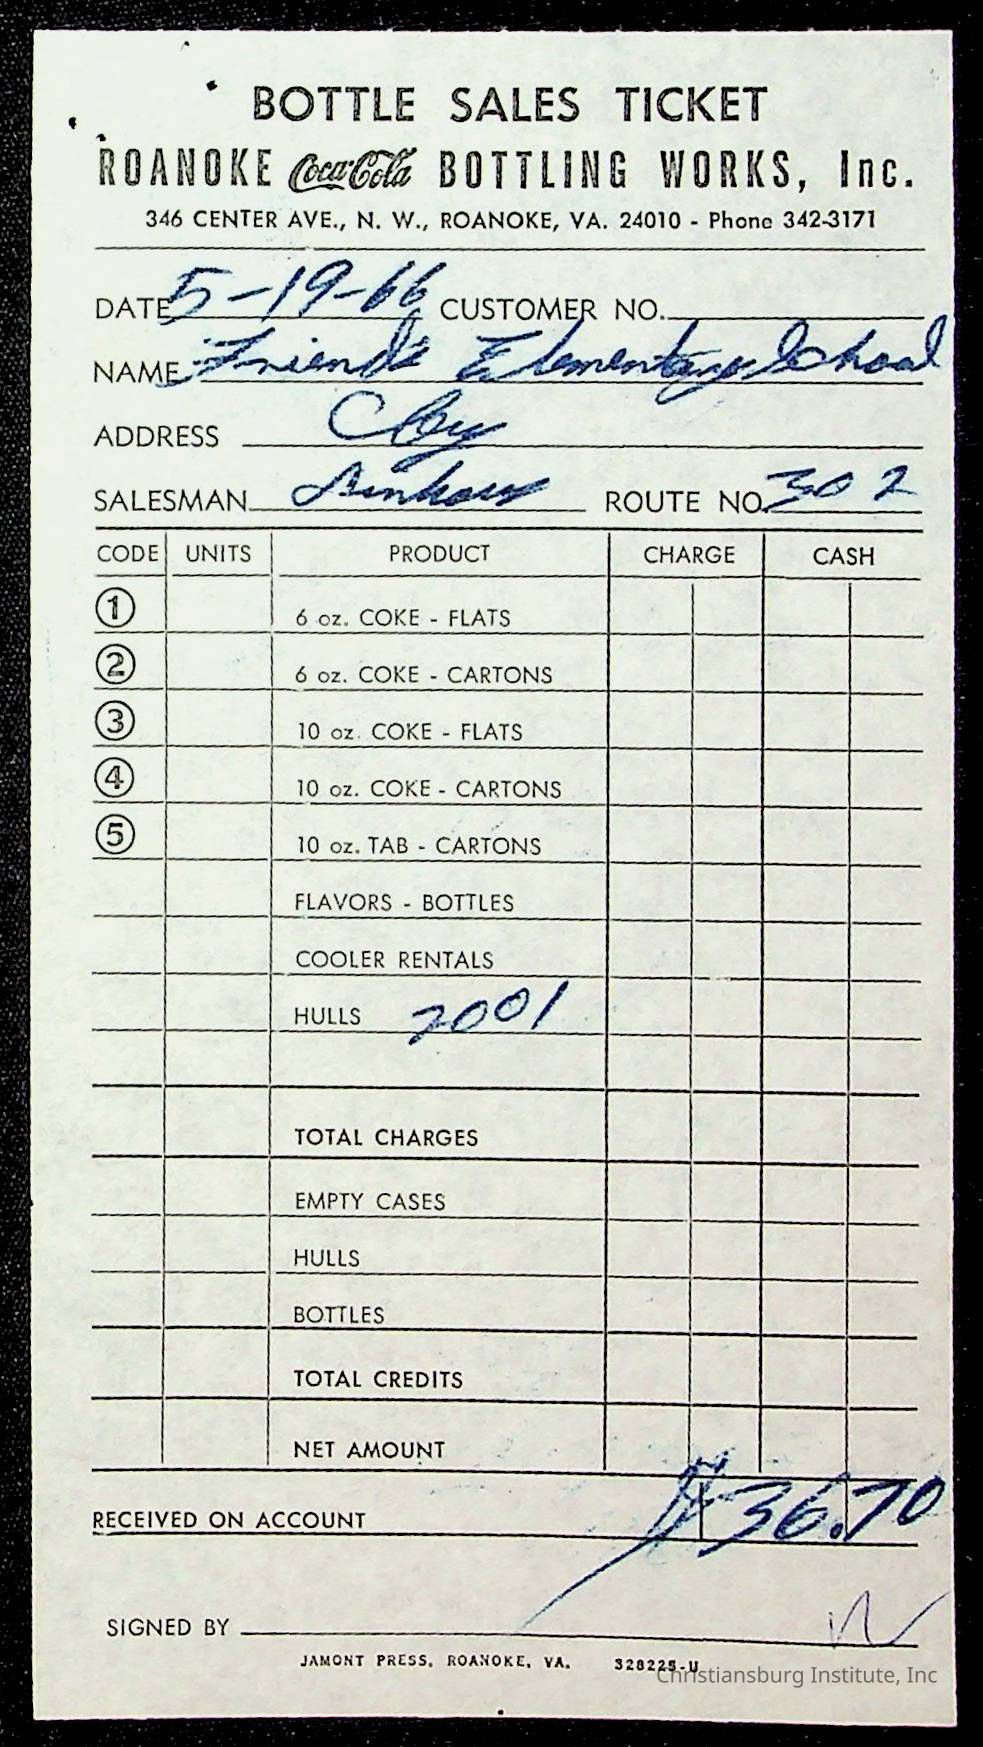 BOTTLE SALES TICKET
ROANOKE Coca-Cola BOTTLING WORKS, Inc.
346 CENTER AVE., N. W., ROANOKE, VA. 24010 - Phone 342-3171
DATE 5-19-66 CUSTOMER NO.
NAME Friends Elementary School
ADDRESS
SALESMAN ROUTE NO. 302
CODE UNITS PRODUCT CHARGE CASH
1 6 oz. COKE - FLATS
2 6 oz. COKE - CARTONS
3 10 oz. COKE - FLATS
4 10 oz. COKE - CARTONS
5 10 oz. TAB - CARTONS
FLAVORS - BOTTLES
COOLER RENTALS
HULLS 2001
TOTAL CHARGES
EMPTY CASES
HULLS
BOTTLES
TOTAL CREDITS
NET AMOUNT
RECEIVED ON ACCOUNT $36.70
SIGNED BY
JAMONT PRESS, ROANOKE, VA. 328225-U
Christiansburg Institute, Inc